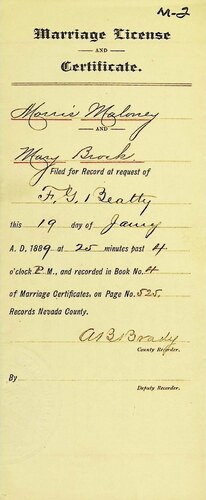 M-2
Marriage License
AND
Certificate.
Morris Maloney
AND
Mary Brock
Filed for Record at request of
F. G. Beatty
this 19 day of Jany
A. D. 1889 at 25 minutes past 4
o'clock P. M., and recorded in Book No. 4
of Marriage Certificates, on Page No. 525,
Records Nevada County.
A B Brady
County Recorder.
By
Deputy Recorder.